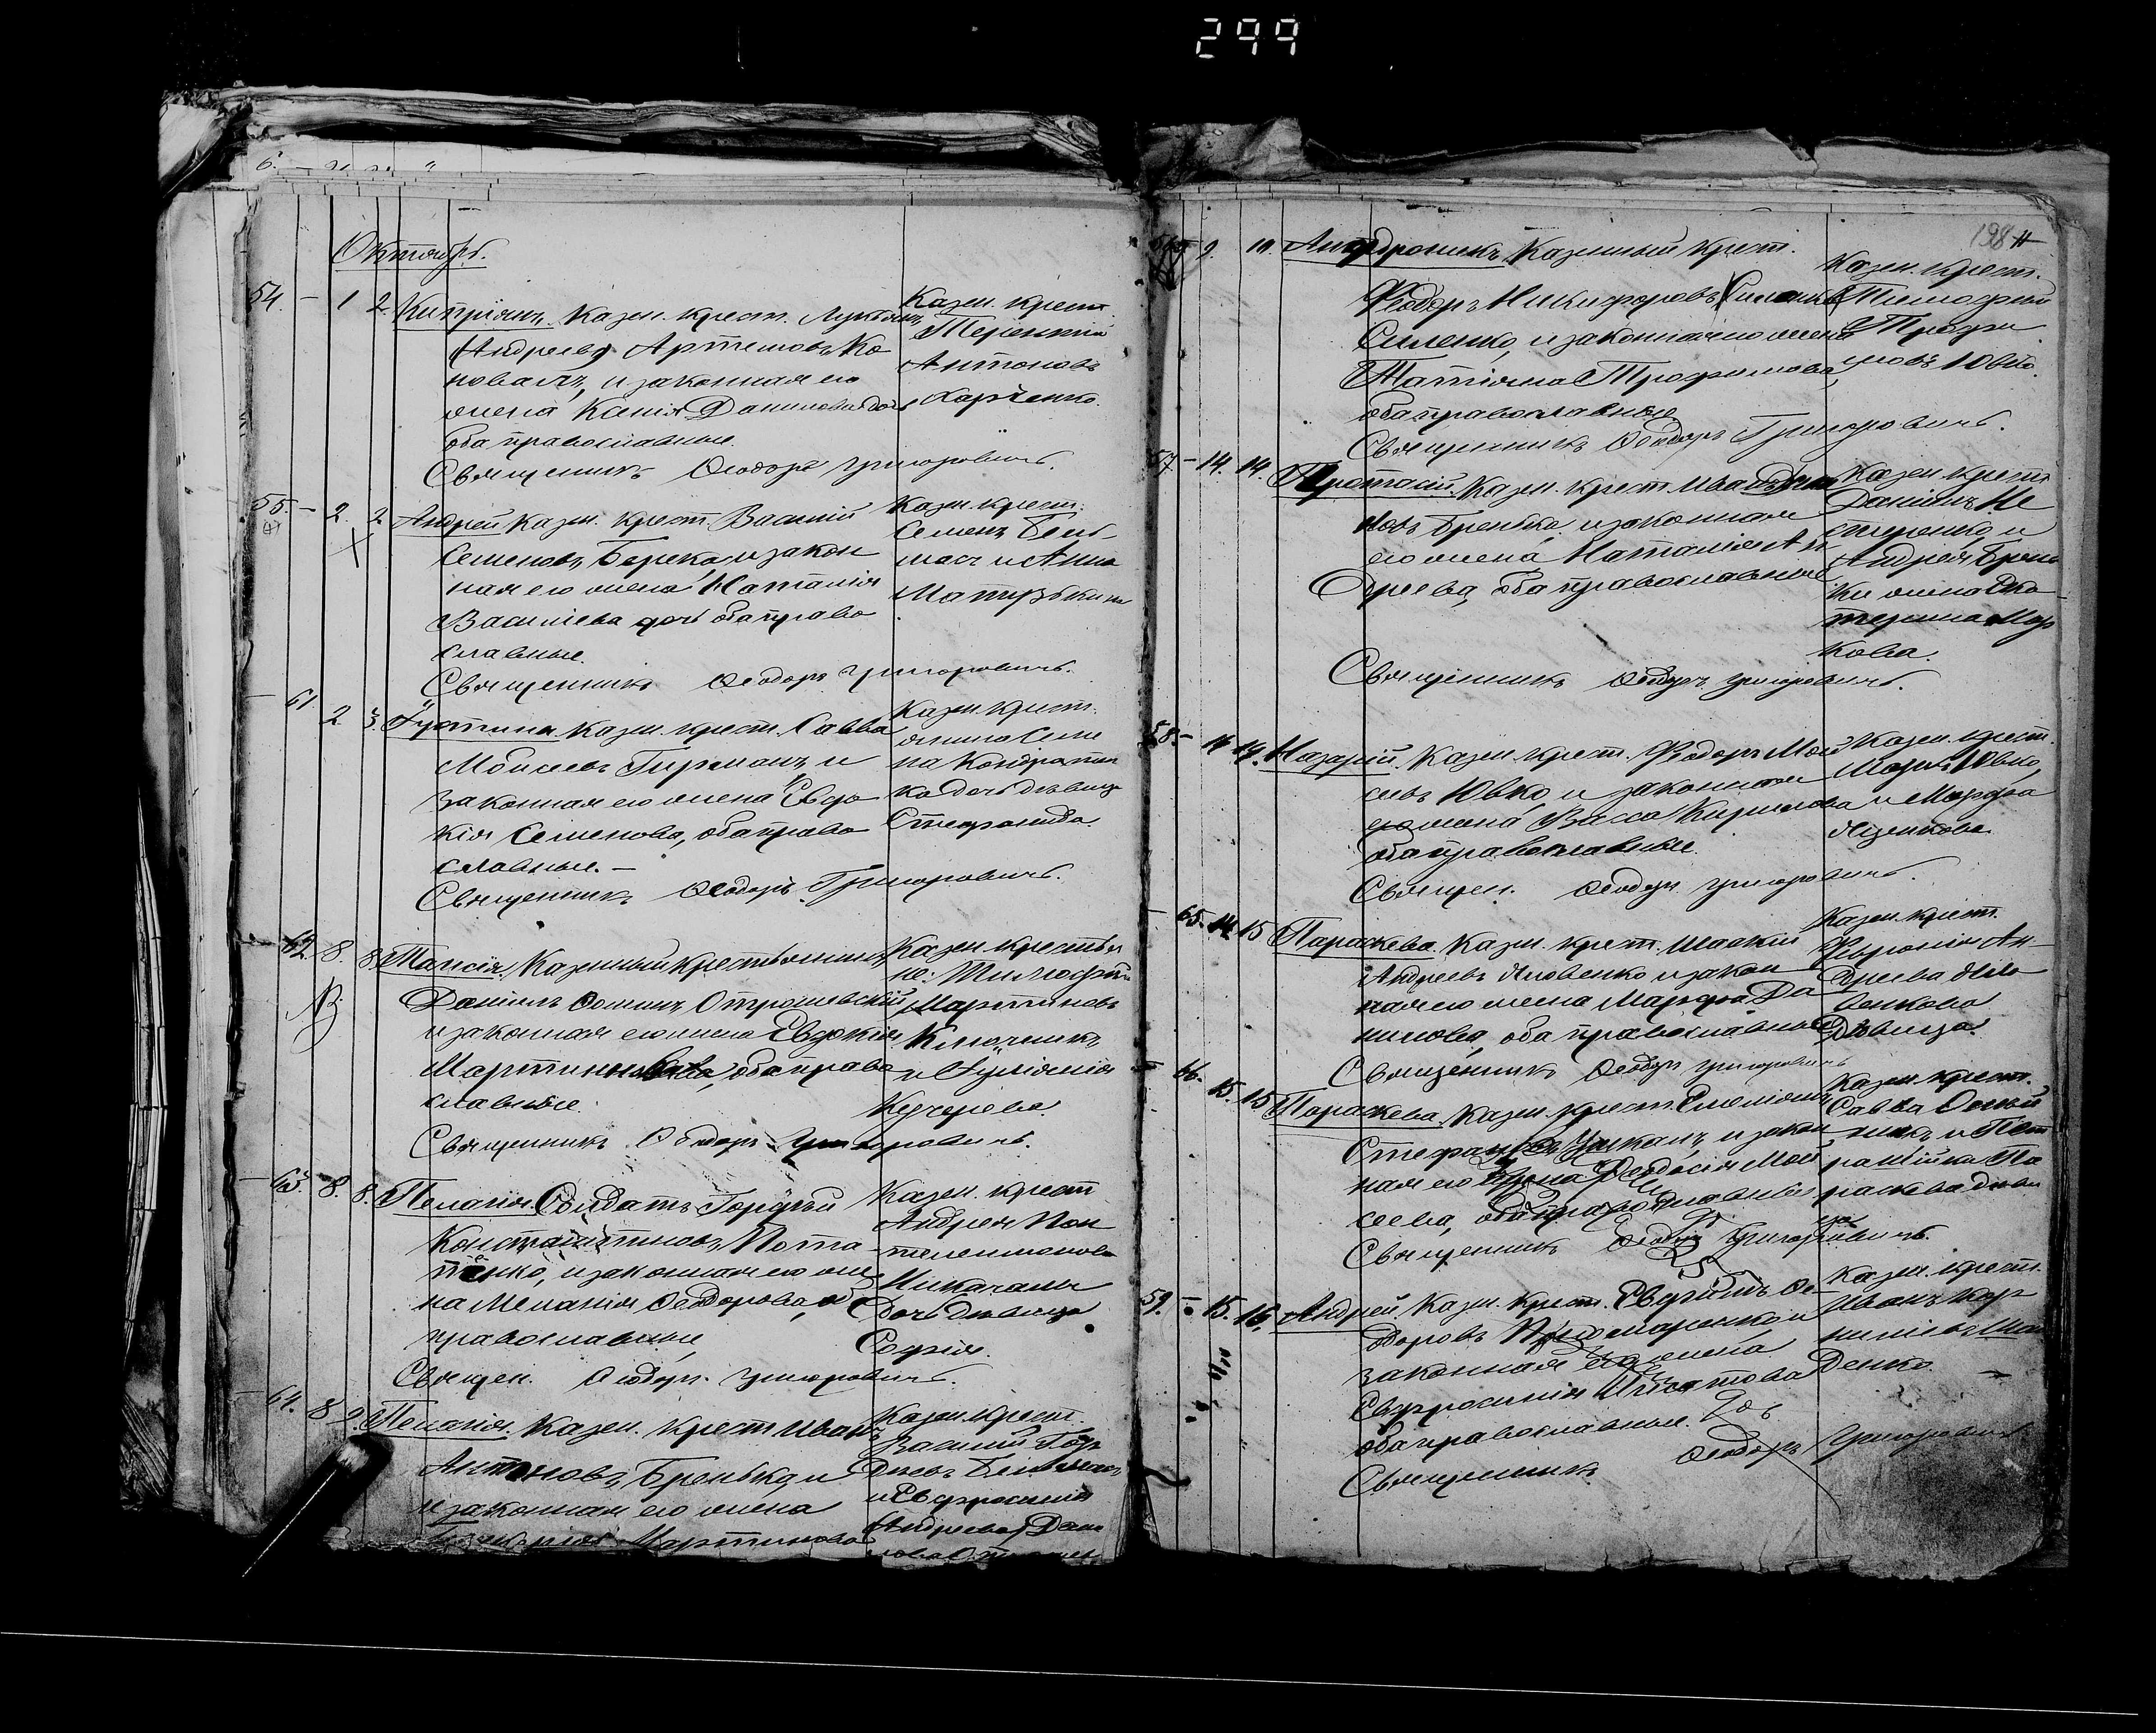 299
6.
Октябрь.
54. — 1 2. Кипріянъ. Казен. крест. Лукьянъ
Андреевъ Артемовъ Ко
новалъ, и законная его
жена Ксенія Данилова дочь
оба православные.
Священникъ Ѳеодоръ Григоровичъ.
Казен. крест.
Терентій
Антоновъ
Харченко.
55. — 2. 2. Андрей Казен. крест. Василій
Семеновъ Берека, и закон
ная его жена Наталія
Василіева дочь оба право
славные.
Священникъ Ѳеодоръ Григоровичъ.
Казен. крест.
Семенъ Бель-
масъ и Анна
61 2 3. Іустина Казен. крест. Савва
Моисеевъ Гирманъ, и
законная его жена Евдо
кія Семенова, оба право
славные. —
Священникъ Ѳеодоръ Григоровичъ.
Казен. крест.
янина Семе
на Кондратен
ка дочь дѣвица
Стефанида.
62. 8. 8. Таисія. Казенный крестьянинъ
Даніилъ Ѳоминъ Отрошевскій
и законная его жена Евдокія
Мартинова, оба право
славные.
Священникъ Ѳеодоръ Григоровичъ.
Казен. крестья
не: Тимофей
Мартиновъ
Ключникъ
и Іуліанія
Кучерева.
63. — 8. 8. Пелагія. Солдатъ Гордѣй
Константиновъ Пота
пенко, и законная его же
на Меланія Ѳеодорова, оба
православные,
Священ. Ѳеодоръ Григоровичъ.
Казен. крест
Андрея Пан
телеимонова
дочь дѣвица
Софія.
64. 8 9. Пелагія. Казен. крест. Иванъ
Антоновъ Бронька, и
и законная его жена
Мартинова
Казен. крест.
Василій Гор
дѣевъ Бельмасъ
и Евфросинія
Андреева Дани
198
9. 10. Андроникъ Казенный крест.
Ѳеодоръ Никифоровъ
Силенко, и законная его жена
Татіяна Трофимова,
оба православные
Священникъ Ѳеодоръ Григоровичъ.
Казен. крест.
Тимофей
Трофи
мовъ Ювко.
57 — 14. 14. Протасій. Казен. крест. Иванъ
новъ Бренька, и законная
его жена Наталія Ан
дреева, оба православные
Священникъ Ѳеодоръ Григоровичъ.
Казен. крест
Даніилъ Не
стеренко и
Андрея Брень
ки жена Ека
терина Мар
кова.
58. — 14 14. Назарій. Казен. крест. Ѳеодоръ Мои
сеевъ Ювко, и законная
его жена Васса Кирилова
оба православные
Священ. Ѳеодоръ Григоровичъ.
Казен. крест.
Маркъ Ювко,
и Марфа
65. 14. 15 Параскева. Казен. крест. Исакій
Андреевъ Яловенко и закон
ная его жена Марфа Да
нилова, оба православные
Священникъ Ѳеодоръ Григоровичъ
Казен. крест.
Февронія Ан-
дреева Яло
венкова
Дѣвица.
66. 15. 15 Параскева. Казен. крест. Емеліянъ
Стефановъ и закон
ная его жена Ѳеодосія Мои
сеева, оба православные
Священникъ Ѳеодоръ Григоровичъ.
Казен. крест.
Савва
и
Па
раскева дѣви
ца
59. — 15. 16. Андрей Казен. крест. Евфимъ Ѳе
доровъ Пономаренко и
законная его жена
Евфросинія Игнатова
дочь
оба православные.
Священникъ Ѳеодоръ Григоровичъ
Казен. крест.
Иванъ Кор
ниліевъ
денко